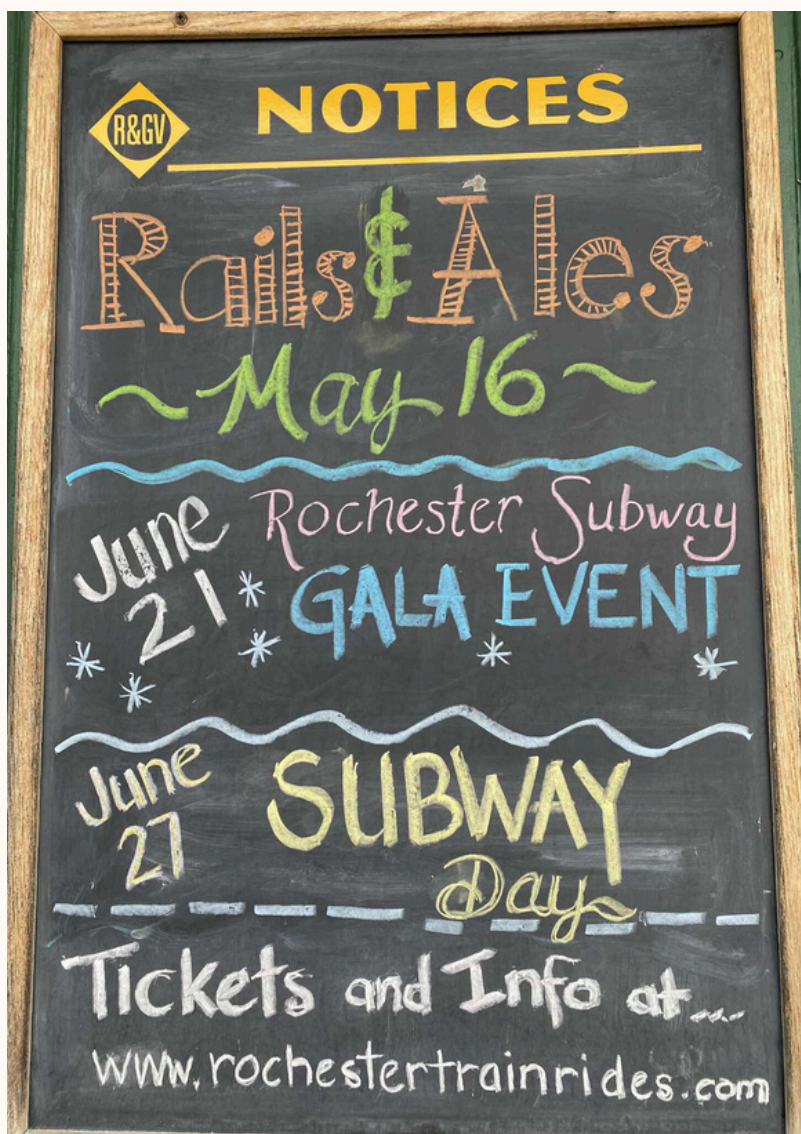 R&GV
NOTICES
Rails & Ales
~ May 16 ~
June 21
Rochester Subway
GALA EVENT
June 27
SUBWAY
Day
Tickets and Info at...
www.rochestertrainrides.com